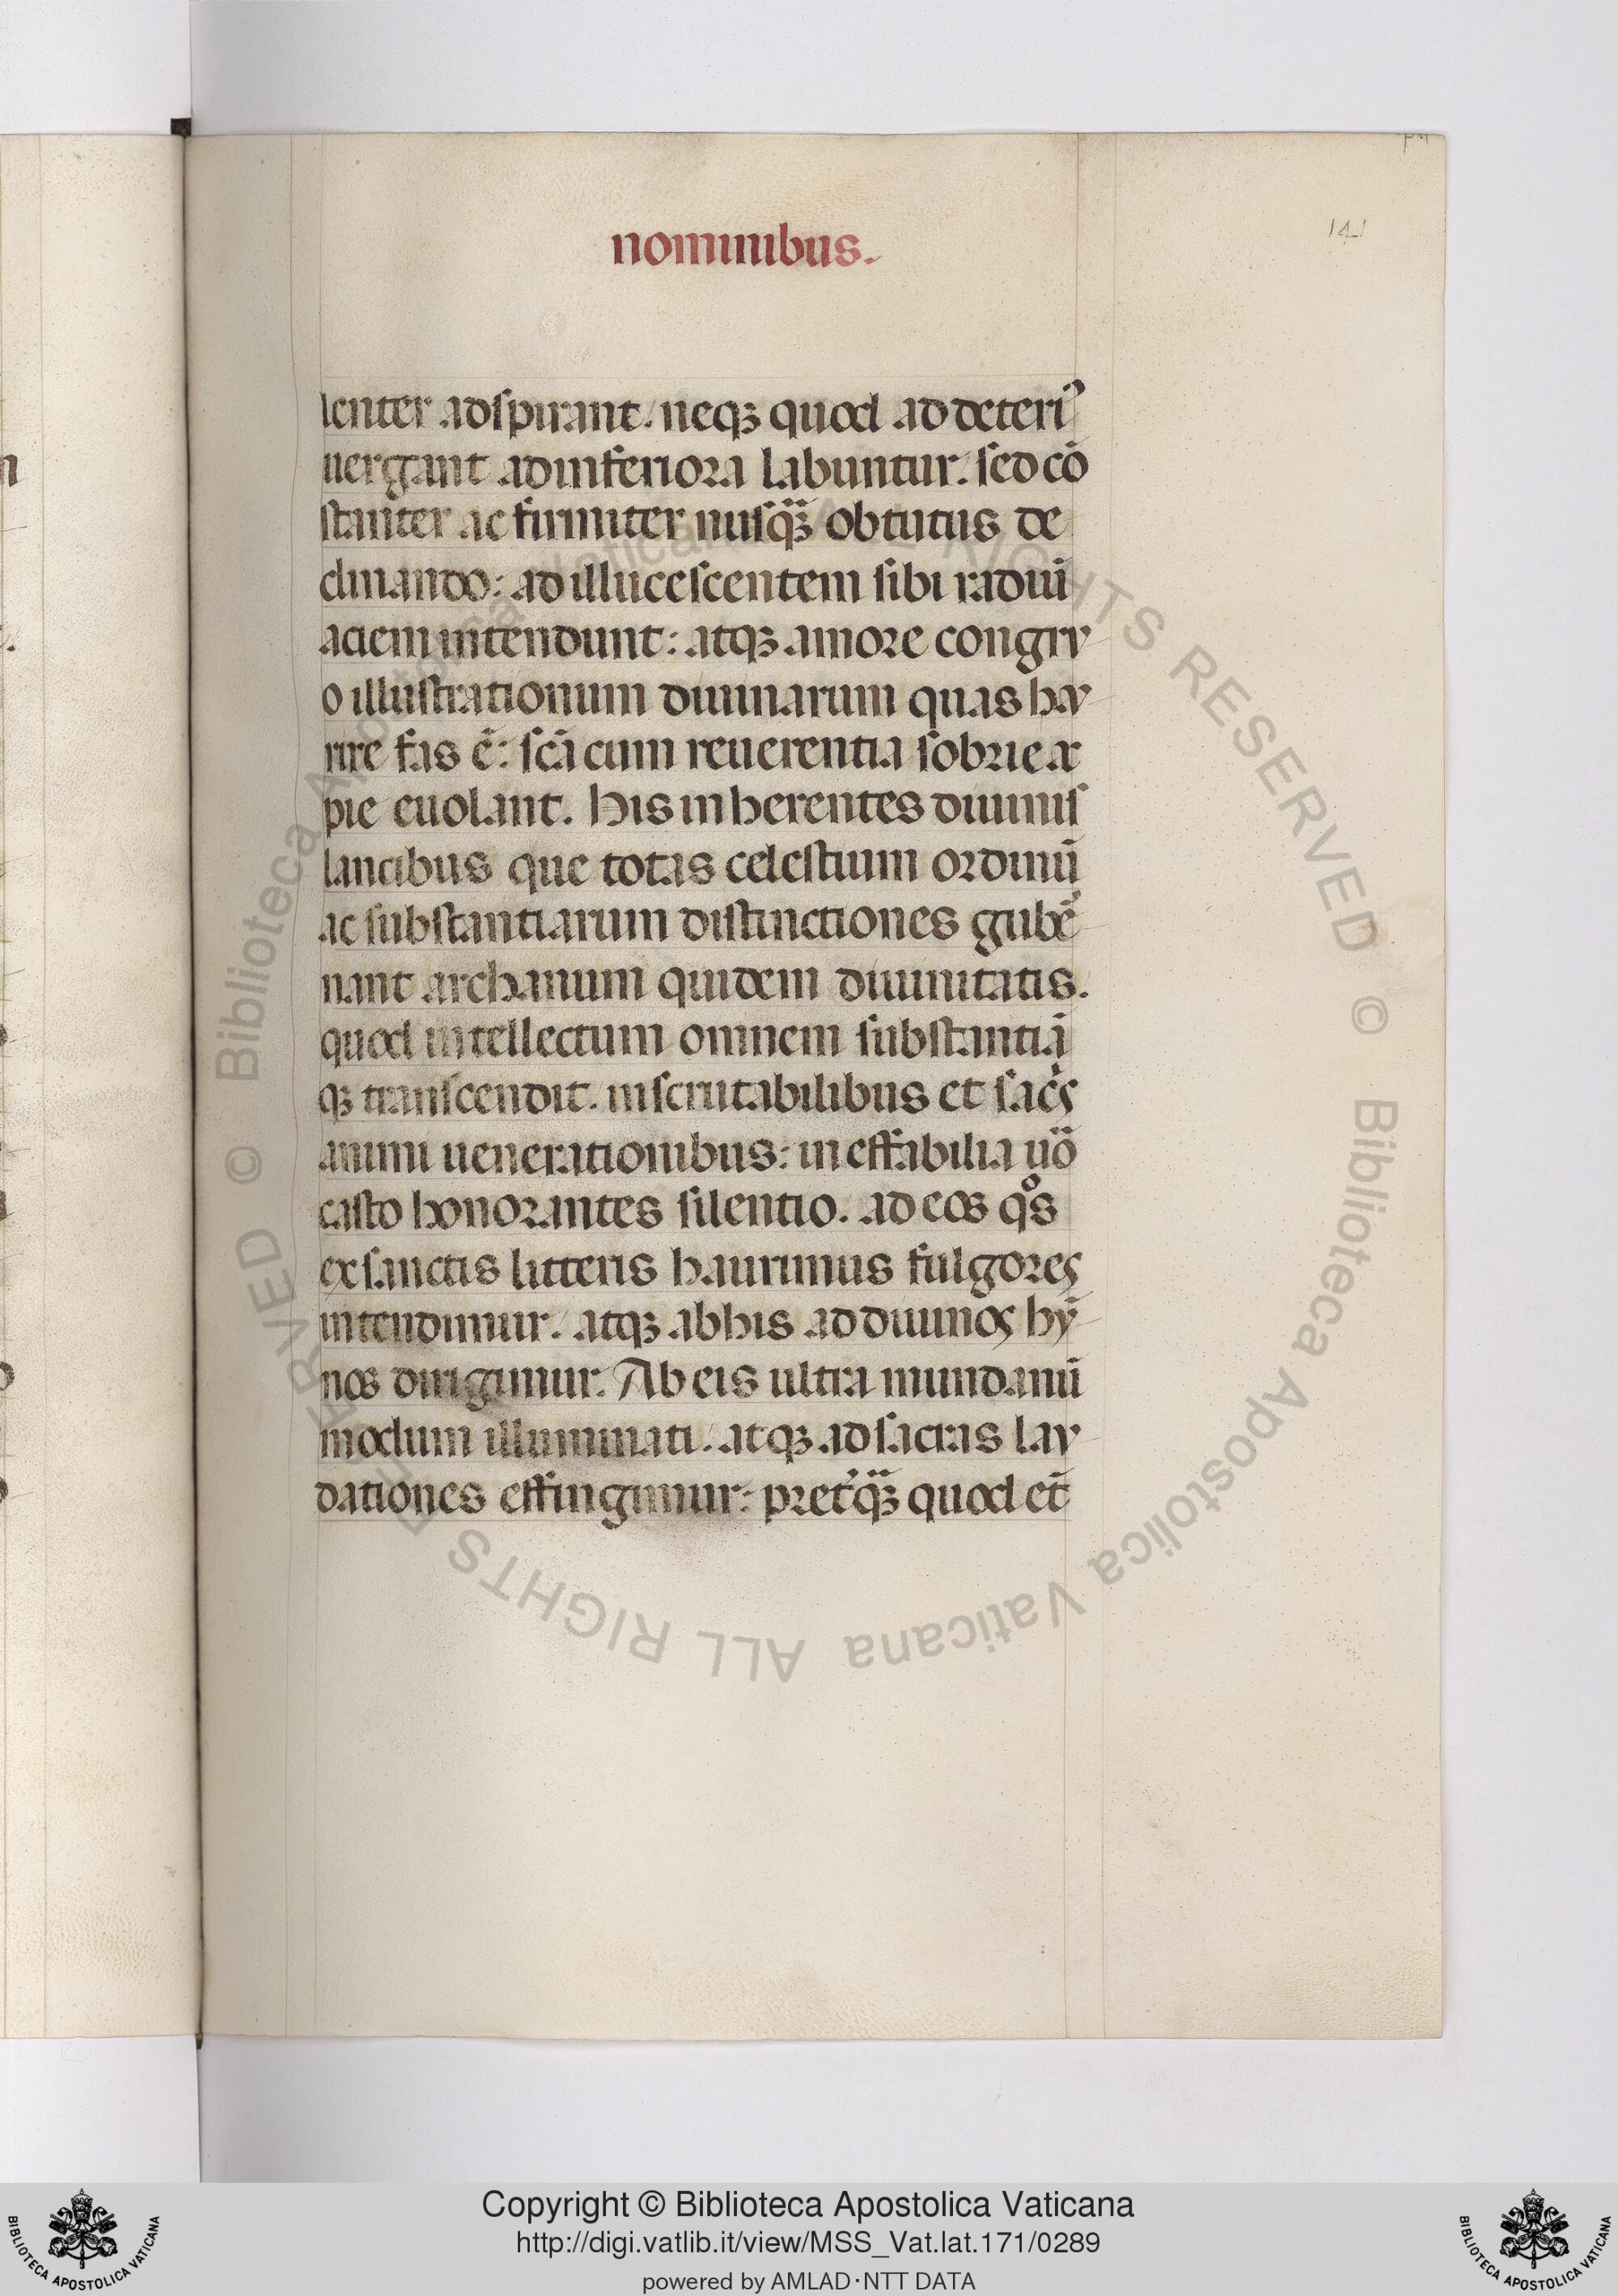 nominibus.
141
lenter adspirant. neqꝫ quod ad deteriꝰ
uergant ad inferiora labuntur. sed cō
stanter ac firmiter nusqꝫ̈ obtutus de
clinando: ad illucescentem sibi radiū
aciem intendunt: atqꝫ amore congru
o illustrationum diuinarum quas hau
rire fas ē: scā cum reuerentia sobrie ac
pie euolant. His inherentes diuinis
lancibus que totas celestium ordinū
ac substantiarum distinctiones gub̄e
nant archanum quidem diuinitatis.
quod intellectum omnem substantiā
qꝫ transcendit. inscrutabilibus et sac̓s
animi uenerationibus: ineffabilia uō
casto honorantes silentio. ad eos qͦs
ex sanctis litteris haurimus fulgores
intendimur. atqꝫ ab his ad diuinos hȳ
nos dirigimur. Ab eis ultra mundanū
modum illuminati. atqꝫ ad sacras lau
dationes effingimur: pret̓qꝫ̈ quod et̄
Copyright © Biblioteca Apostolica Vaticana
http://digi.vatlib.it/view/MSS_Vat.lat.171/0289
powered by AMLAD·NTT DATA
BIBLIOTECA APOSTOLICA VATICANA
BIBLIOTECA APOSTOLICA VATICANA
© Biblioteca Apostolica Vaticana ALL RIGHTS RESERVED © Biblioteca Apostolica Vaticana ALL RIGHTS RESERVED